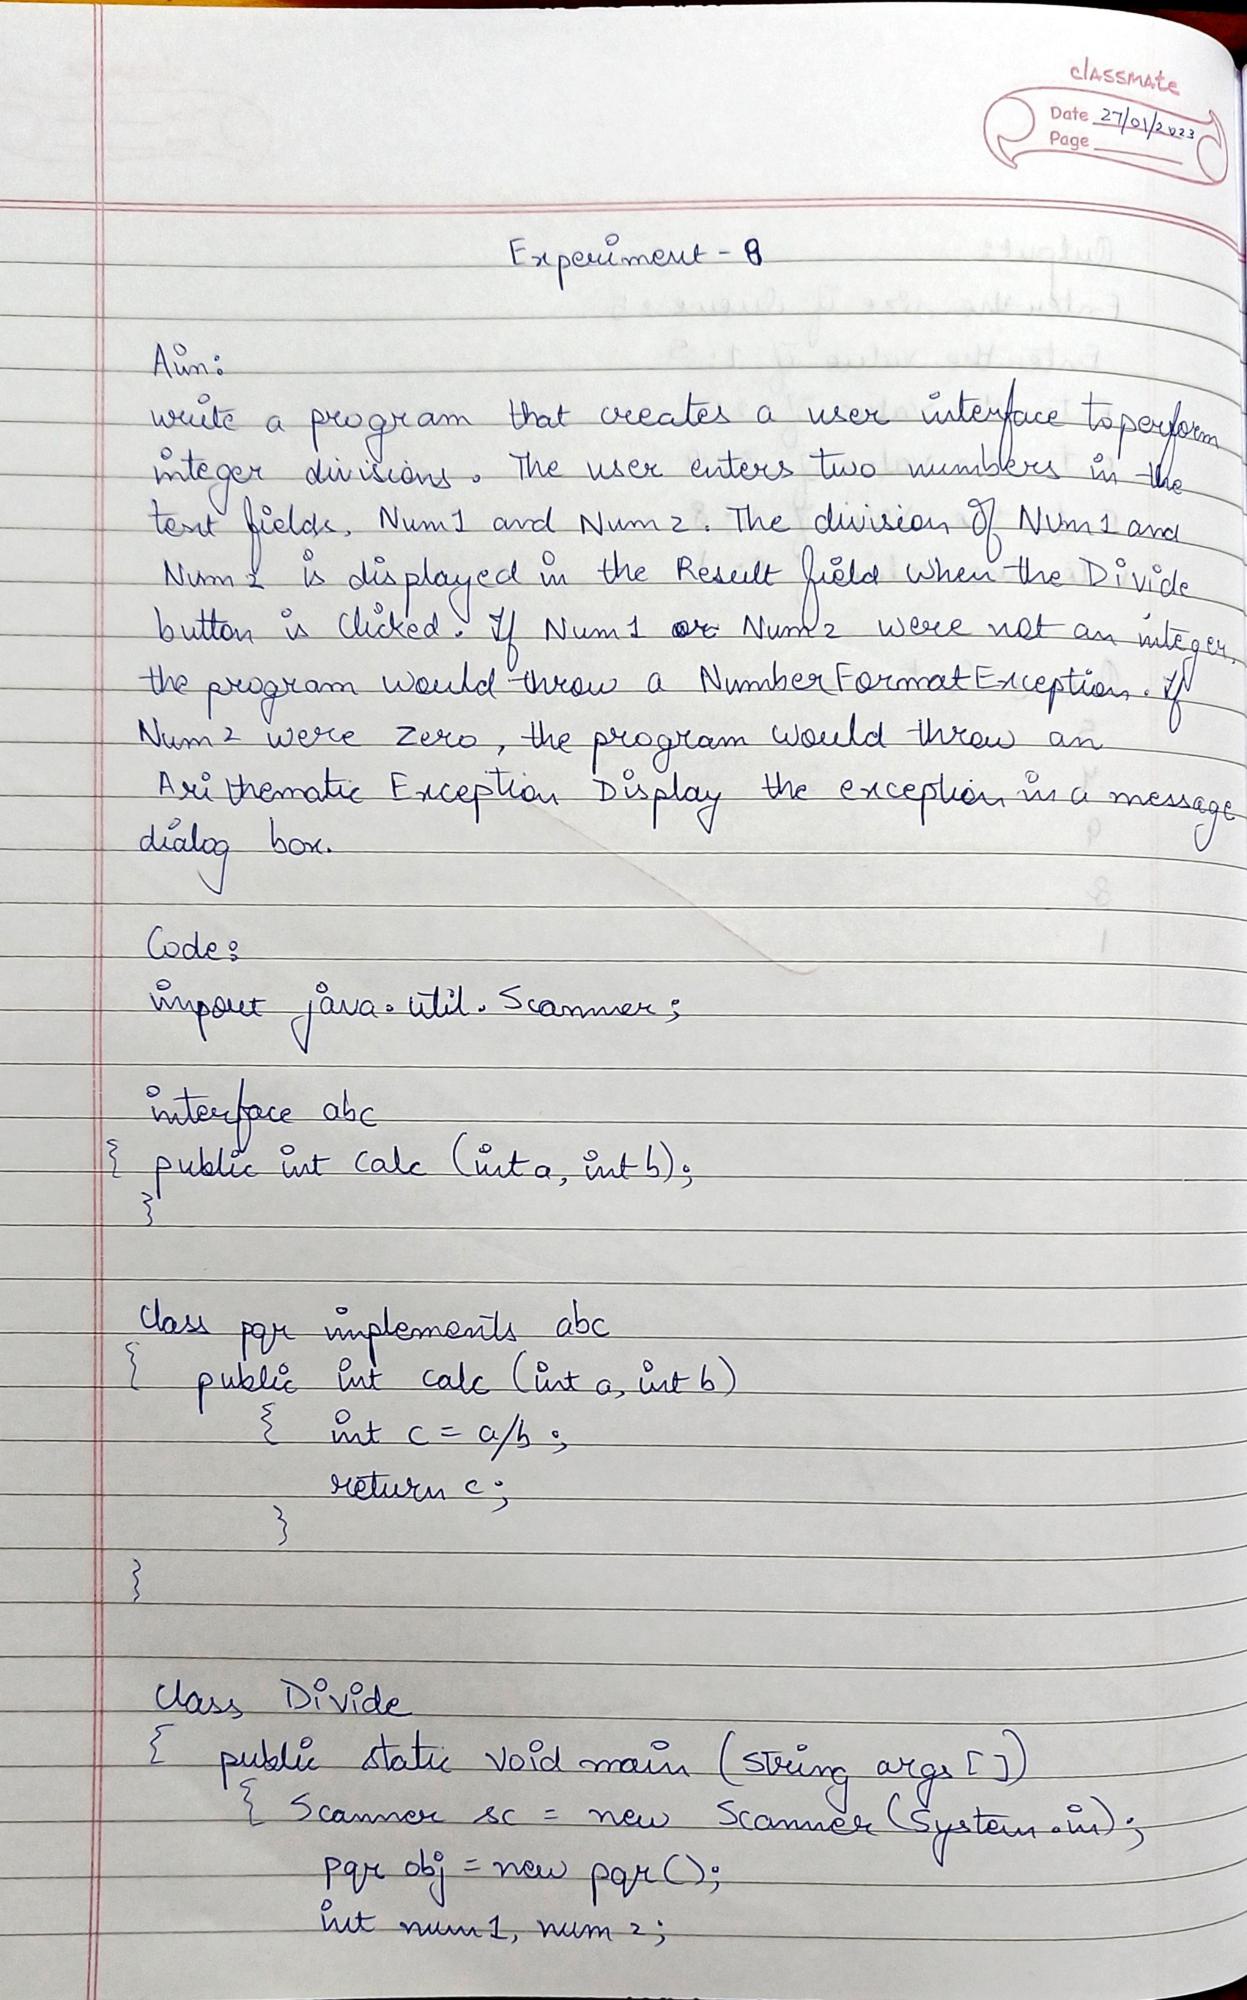 classmate
Date 27/01/2023
Page
Experiment - 8
Aim:
write a program that creates a user interface to perform
integer divisions. The user enters two numbers in the
text fields, Num1 and Num2. The division of Num1 and
Num2 is displayed in the Result field when the Divide
button is clicked. If Num1 or Num2 were not an integer,
the program would throw a NumberFormatException. If
Num2 were zero, the program would throw an
Arithematic Exception Display the exception in a message
dialog box.
Code:
import java.util.Scanner;
interface abc
{ public int calc (int a, int b);
}
class pqr implements abc
{ public int calc (int a, int b)
{ int c = a/b ;
return c;
}
}
class Divide
{ public static void main (String args [])
{ Scanner sc = new Scanner (System.in);
pqr obj = new pqr();
int num1, num2;